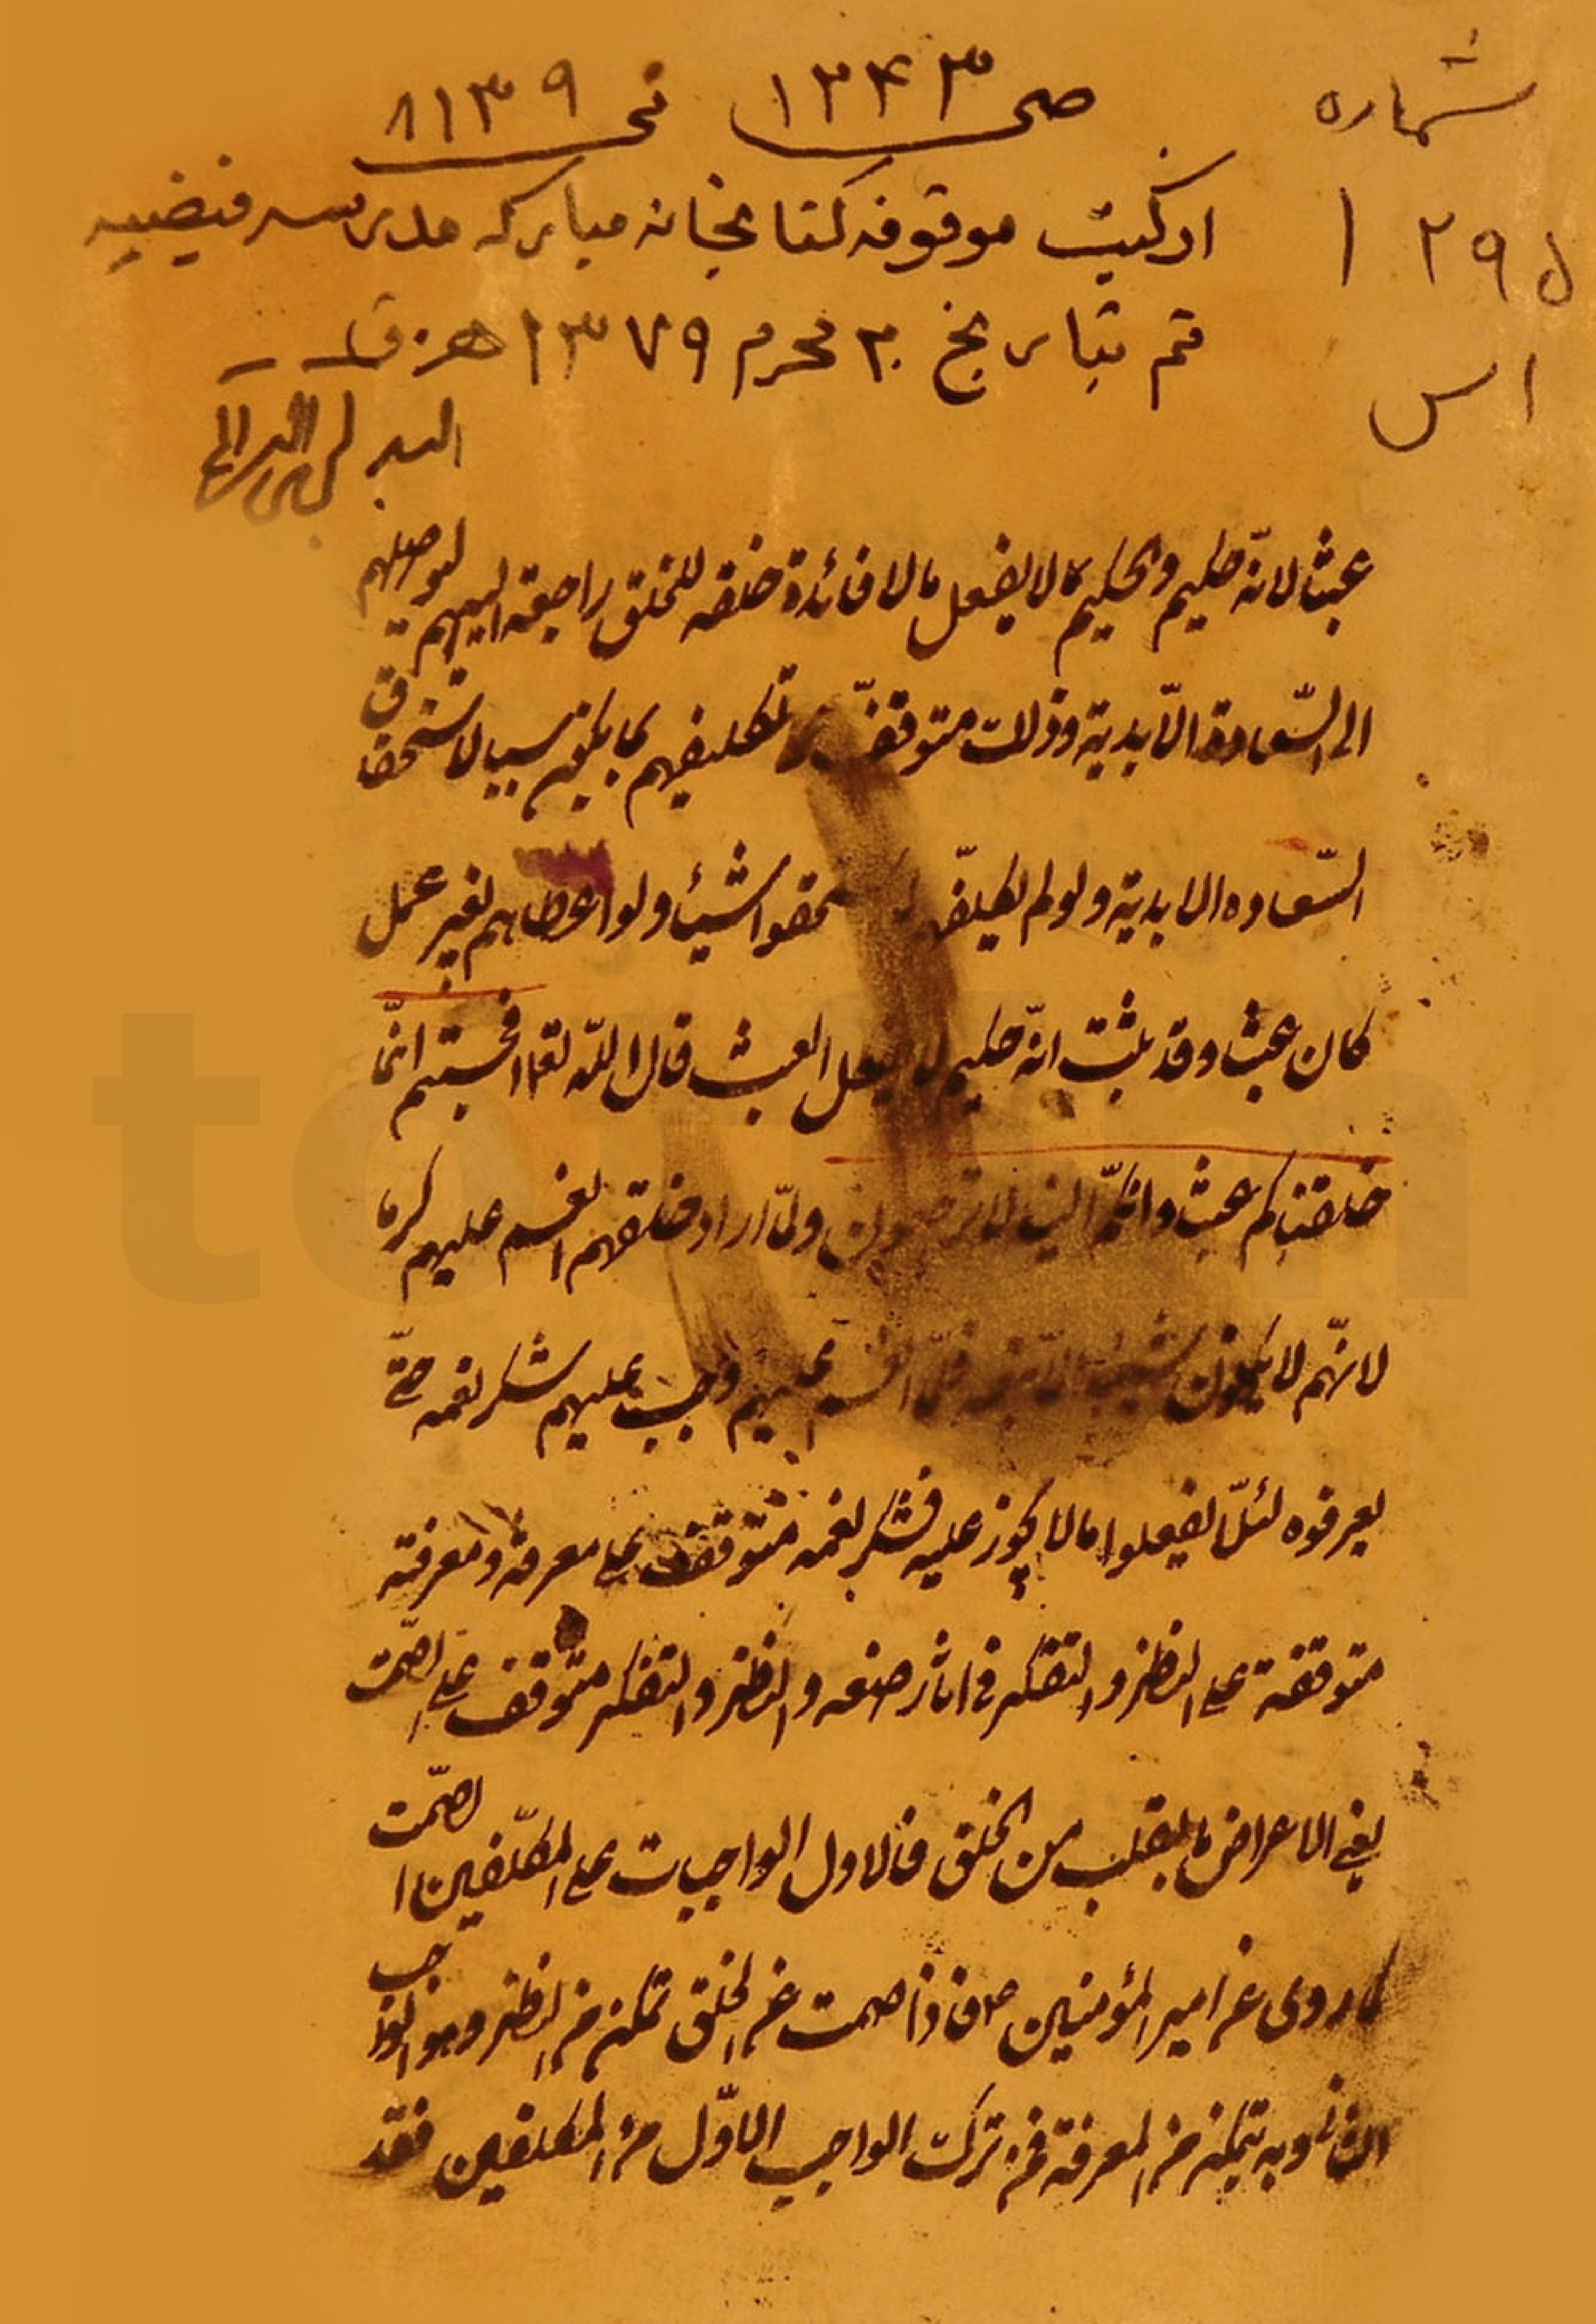 شماره
۱۲۹۵
اس
صحـ ۱۳۴۳ نحـ ۸۱۳۹
از کتب موقوفه کتابخانه مبارکه مدرسه فیضیه
قم بتاریخ ۳۰ محرم ۱۳۷۹ هـ ق
عبثا لانّه حكيم والحكيم لا يفعل ما لا فائدة خلقه للخلق راجعة اليهم ليوصلهم
الى السّعادة الابديّة وذلك متوقف تكليفهم بما يكون سببا لاستحقاق
السّعاده الابدية ولو لم يكلفهم يستحقوا شيئا ولو اعطاهم بغير عمل
كان عبثا وقد ثبت انّه حكيم لا يفعل العبث قال اللّه تعا افحسبتم انّما
خلقناكم عبثا وانكم الينا لا ترجعون ولمّا اراد خلقهم انعم عليهم كرما
لانّهم لا يكونون شيئا الّا بنعمه فلمّا انعم عليهم وجب عليهم شكر نعمه حتّى
يعرفوه لئلّا يفعلوا ما لا يجوز عليه فشكر نعمه متوقف على معرفته ومعرفته
متوقفة على النظر والتفكر فى اثار صنعه والنظر والتفكر متوقف على الصّمت
يعنى الاعراض بالقلب من الخلق فالاول الواجبات على المكلّفين الصّمت
كما روى عن امير المؤمنين ص فاذا صمت عن الخلق تمكن من النظر وهو الواجب
الثانى وبه يتمكن من المعرفة فمن ترك الواجب الاوّل من المكلفين فقد